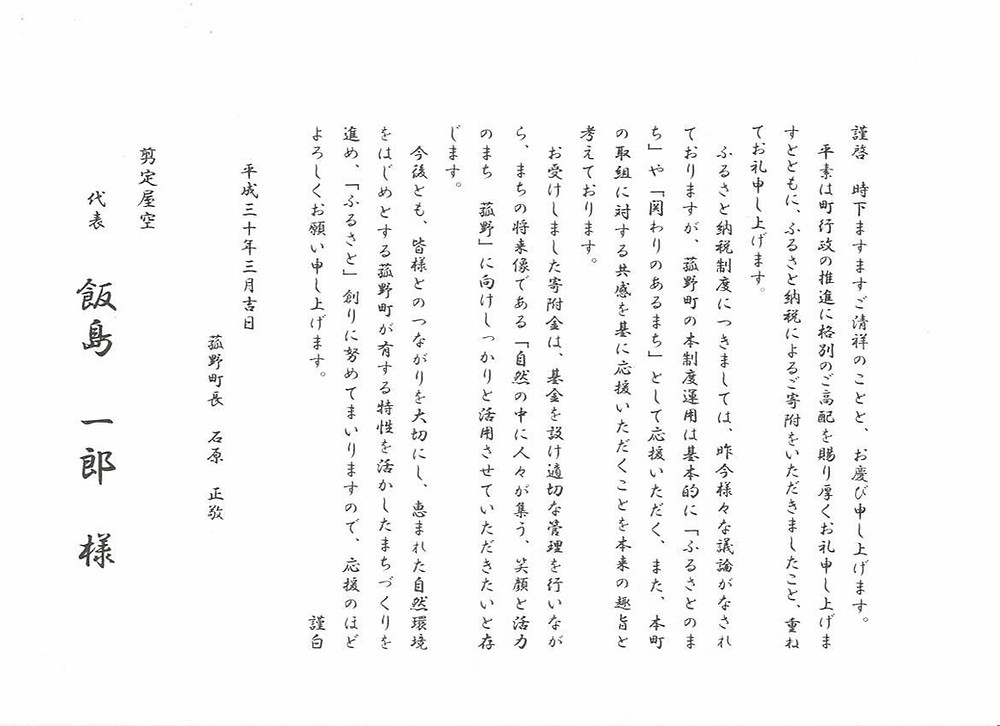 謹啓　時下ますますご清祥のことと、お慶び申し上げます。
平素は町行政の推進に格別のご高配を賜り厚くお礼申し上げま
すとともに、ふるさと納税によるご寄附をいただきましたこと、重ね
てお礼申し上げます。
ふるさと納税制度につきましては、昨今様々な議論がなされ
ておりますが、菰野町の本制度運用は基本的に「ふるさとのま
ち」や「関わりのあるまち」として応援いただく、また、本町
の取組に対する共感を基に応援いただくことを本来の趣旨と
考えております。
お受けしました寄附金は、基金を設け適切な管理を行いなが
ら、まちの将来像である「自然の中に人々が集う、笑顔と活力
のまち　菰野」に向けしっかりと活用させていただきたいと存
じます。
今後とも、皆様とのつながりを大切にし、恵まれた自然環境
をはじめとする菰野町が有する特性を活かしたまちづくりを
進め、「ふるさと」創りに努めてまいりますので、応援のほど
よろしくお願い申し上げます。
謹白
平成三十年三月吉日
菰野町長　石原　正敬
剪定屋空
代表　飯島　一郎　様